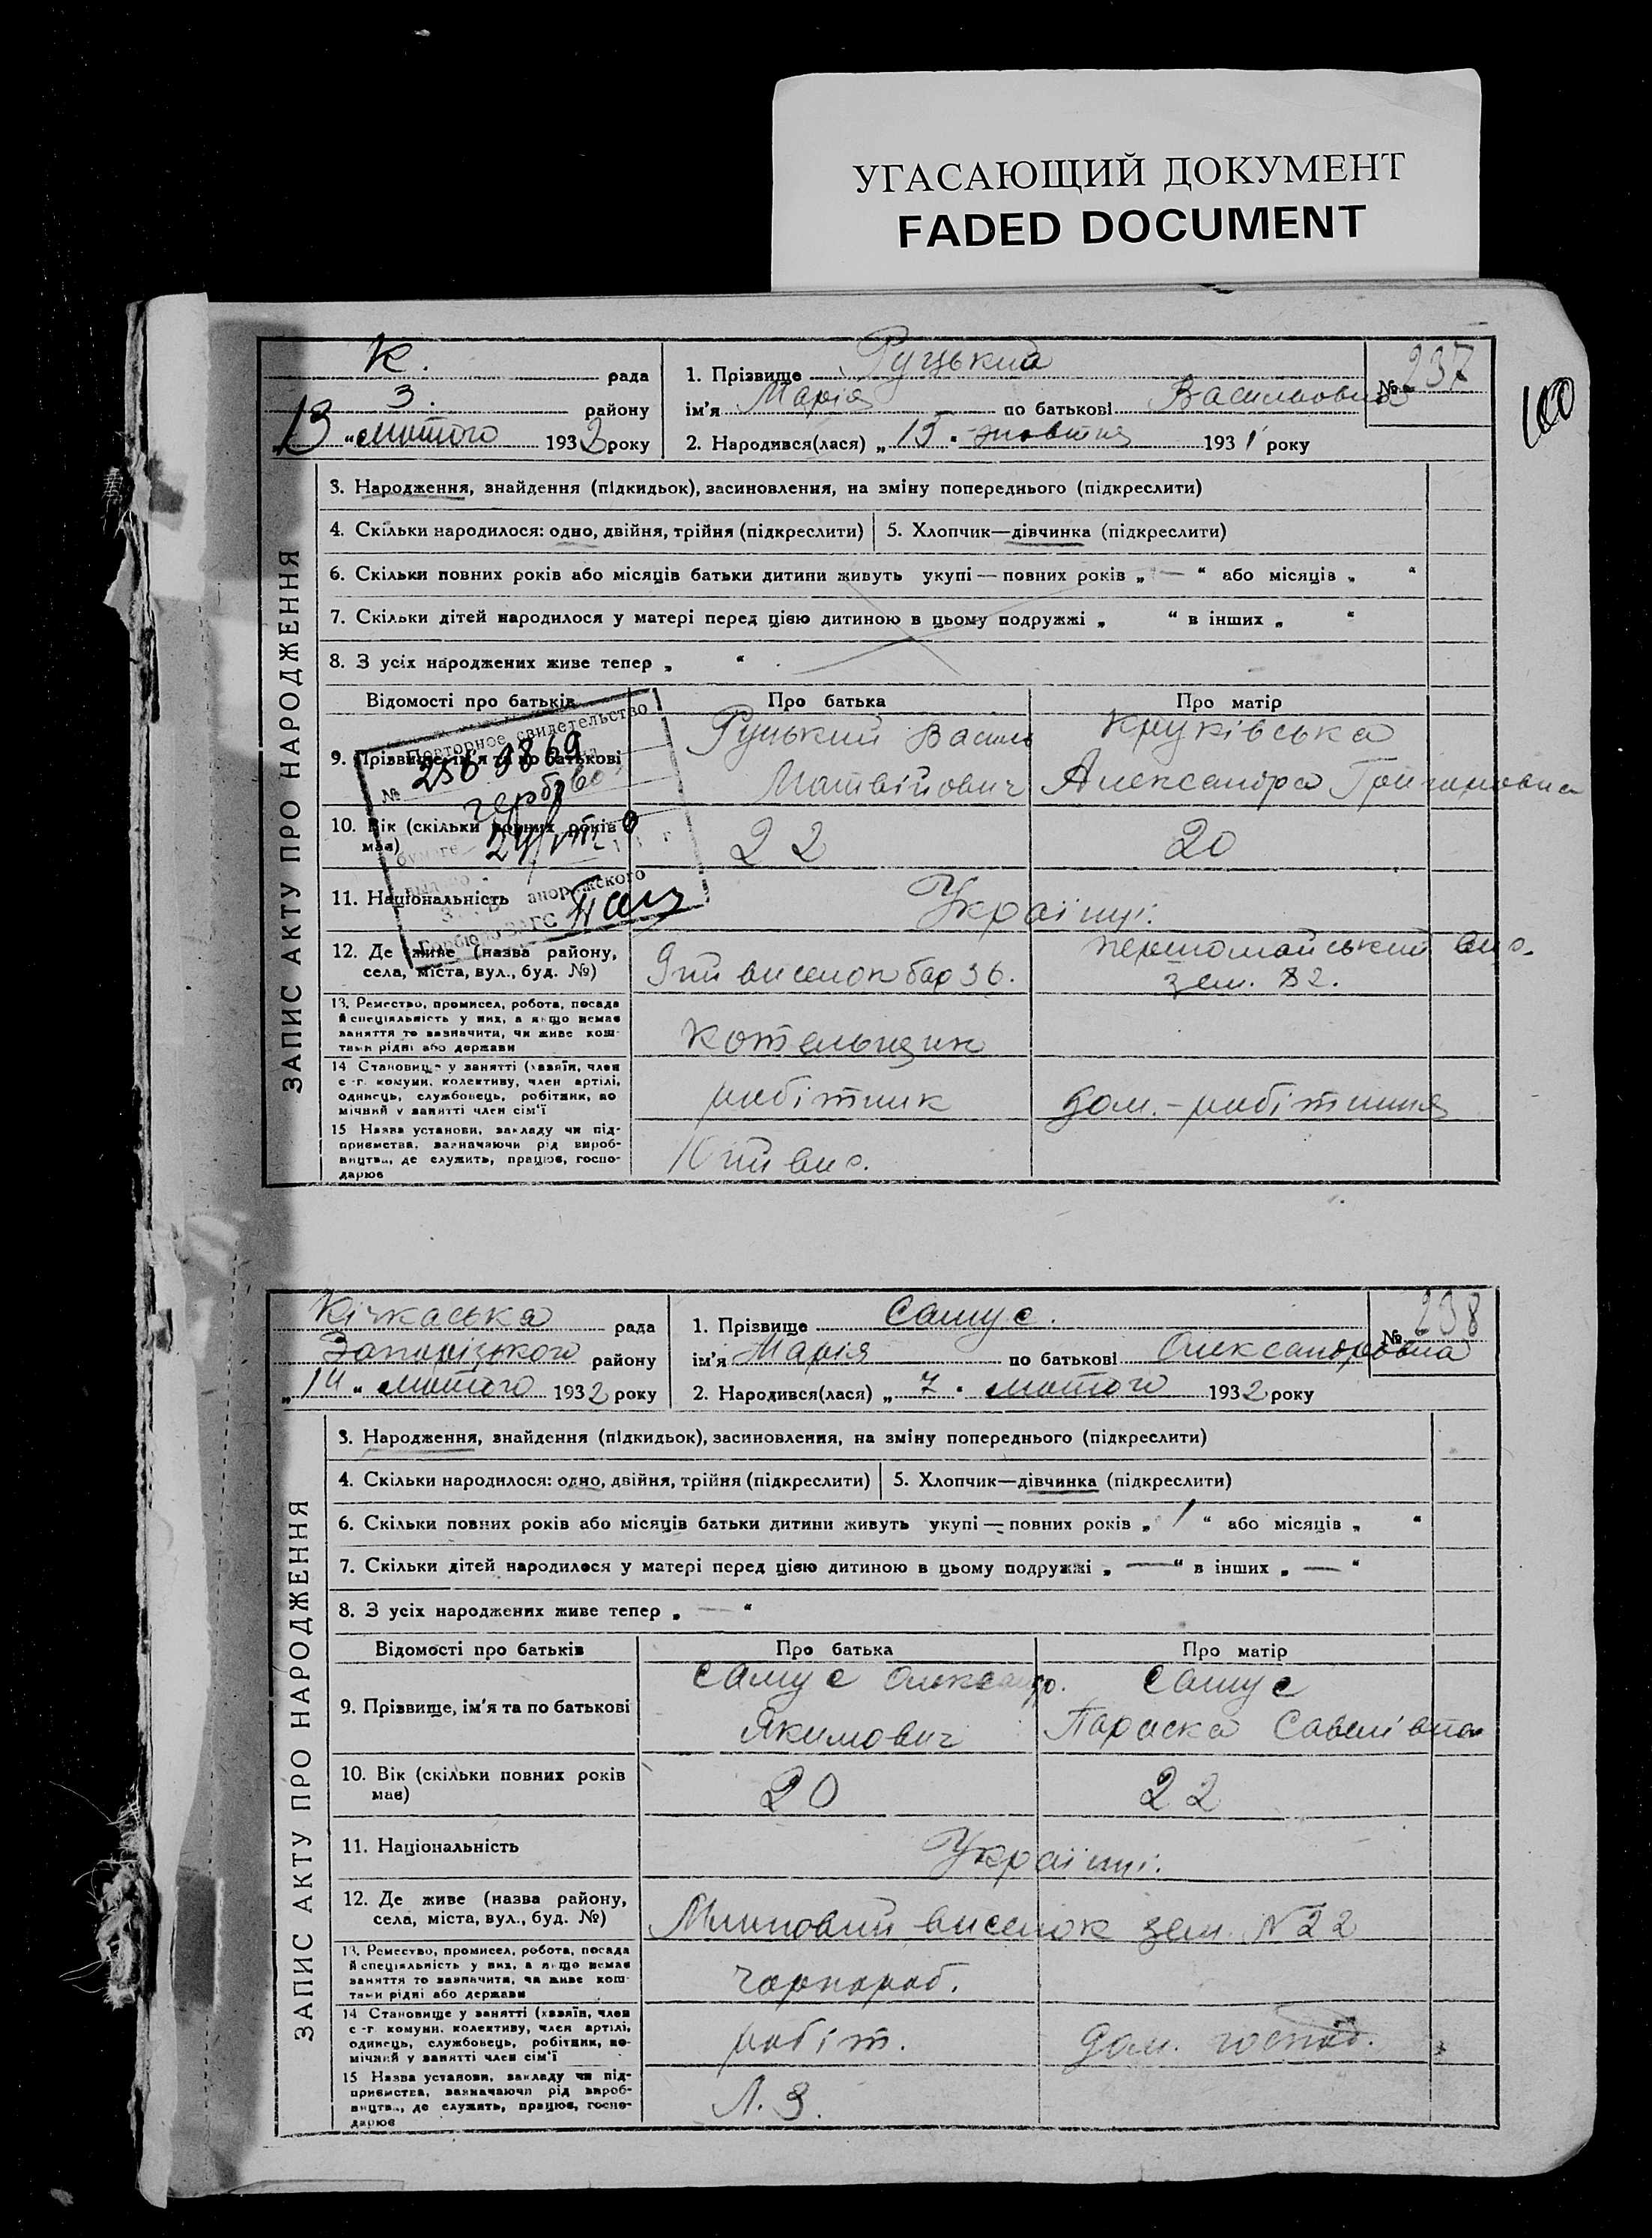 УГАСАЮЩИЙ ДОКУМЕНТ
FADED DOCUMENT
100
ЗАПИС АКТУ ПРО НАРОДЖЕННЯ
К. рада
З. району
13 "лютого 1932 року
1. Прізвище Руцький
ім'я Марія по батькові Васильовна
№ 237
2. Народився(лася) „15" жовтня 1931 року
3. Народження, знайдення (підкидьок), засиновлення, на зміну попереднього (підкреслити)
4. Скільки народилося: одно, двійня, трійня (підкреслити)
5. Хлопчик—дівчинка (підкреслити)
6. Скільки повних років або місяців батьки дитини живуть укупі — повних років „ — “ або місяців „ “
7. Скільки дітей народилося у матері перед цією дитиною в цьому подружжі „ “ в інших „ “
8. З усіх народжених живе тепер „ “
Відомості про батьків
Про батька
Про матір
9. Прізвище, ім'я та по батькові
Руцький Василь
Матвійович
Круківська
Александра
10. Вік (скільки повних років має)
22
20
11. Національність
Українці.
12. Де живе (назва району,
села, міста, вул., буд. №)
9тий виселок бар 36.
першомайський вис.
зем. 82.
13. Ремество, промисел, робота, посада
й спеціяльність у них, а якщо немає
заняття то зазначити, чи живе кош-
тами рідні або держави
Котельщик
14 Становище у занятті (хазяїн, член
с.-г. комуни, колективу, член артілі,
одинець, службовець, робітник, по
мічний у занятті член сім'ї
робітник
дом.-робітниця
15 Назва установи, закладу чи під-
приємства, зазначаючи рід вироб-
ництва, де служить, працює, госпо-
дарює
10тий вис.
Повторное свидетельство
№ 256 9869
гербово
бумаге
выдано
Запорожского
Горбюро ЗАГС
ЗАПИС АКТУ ПРО НАРОДЖЕННЯ
Кічкаська рада
Запорізького району
„14" лютого 1932 року
1. Прізвище Самус.
ім'я Марія по батькові Олександровна
№ 238
2. Народився(лася) „7" лютого 1932 року
3. Народження, знайдення (підкидьок), засиновлення, на зміну попереднього (підкреслити)
4. Скільки народилося: одно, двійня, трійня (підкреслити)
5. Хлопчик—дівчинка (підкреслити)
6. Скільки повних років або місяців батьки дитини живуть укупі — повних років „ 1 “ або місяців „ “
7. Скільки дітей народилося у матері перед цією дитиною в цьому подружжі „ — “ в інших „ — “
8. З усіх народжених живе тепер „ — “
Відомості про батьків
Про батька
Про матір
9. Прізвище, ім'я та по батькові
Самус Олександр.
Якимович
Самус
Параска Савеліівна
10. Вік (скільки повних років
має)
20
22
11. Національність
Українці.
12. Де живе (назва району,
села, міста, вул., буд. №)
Млиновий виселок зем. N 22
13. Ремество, промисел, робота, посада
й спеціяльність у них, а якщо немає
заняття то зазначити, чи живе кош-
тами рідні або держави
чорнороб.
14 Становище у занятті (хазяїн, член
с.-г. комуни, колективу, член артілі,
одинець, службовець, робітник, по-
мічний у занятті член сім'ї
робіт.
дом. господ.
15 Назва установи, закладу чи під-
приємства, зазначаючи рід вироб-
ництва, де служить, працює, госпо-
дарює
Л. З.